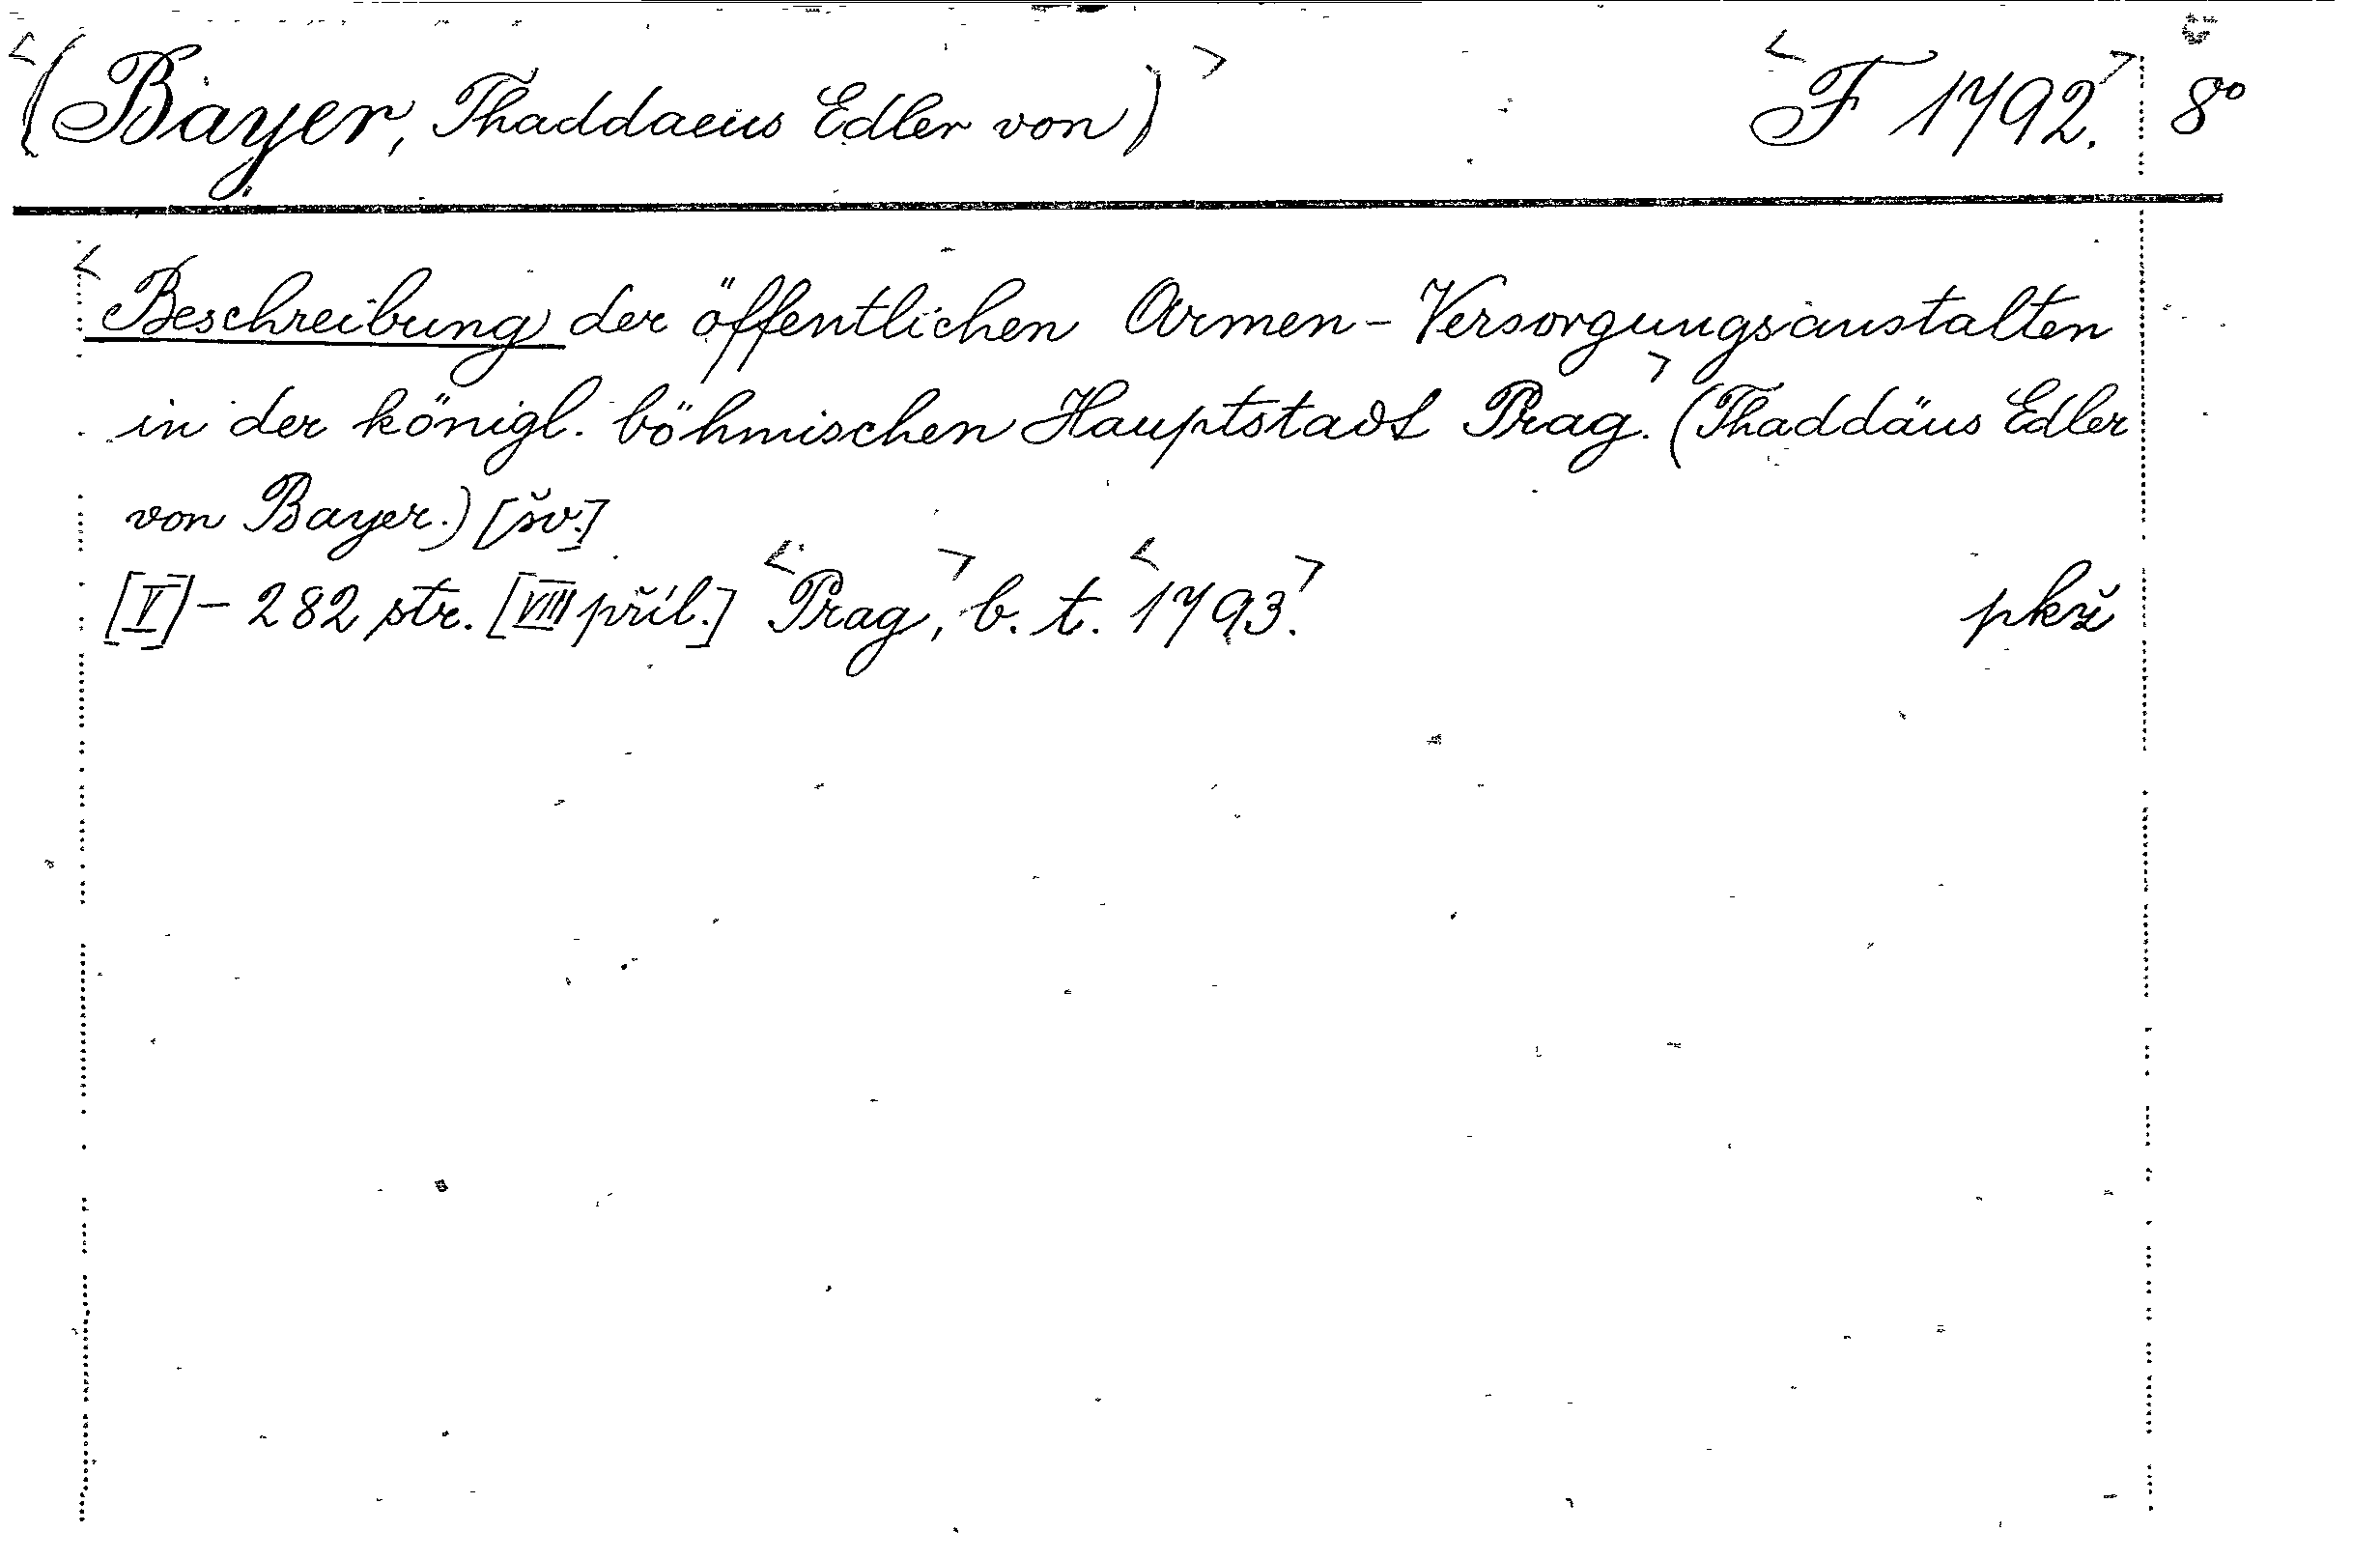 (Bayer, Thaddaeus Edler von) F 1792. 8°
Beschreibung der öffentlichen Armen-Versorgungsanstalten
in der königl. böhmischen Hauptstadt Prag. (Thaddäus Edler
von Bayer.) [šv.]
[V]-282 str. [VIII příl.] Prag, b. t. 1793. pkž